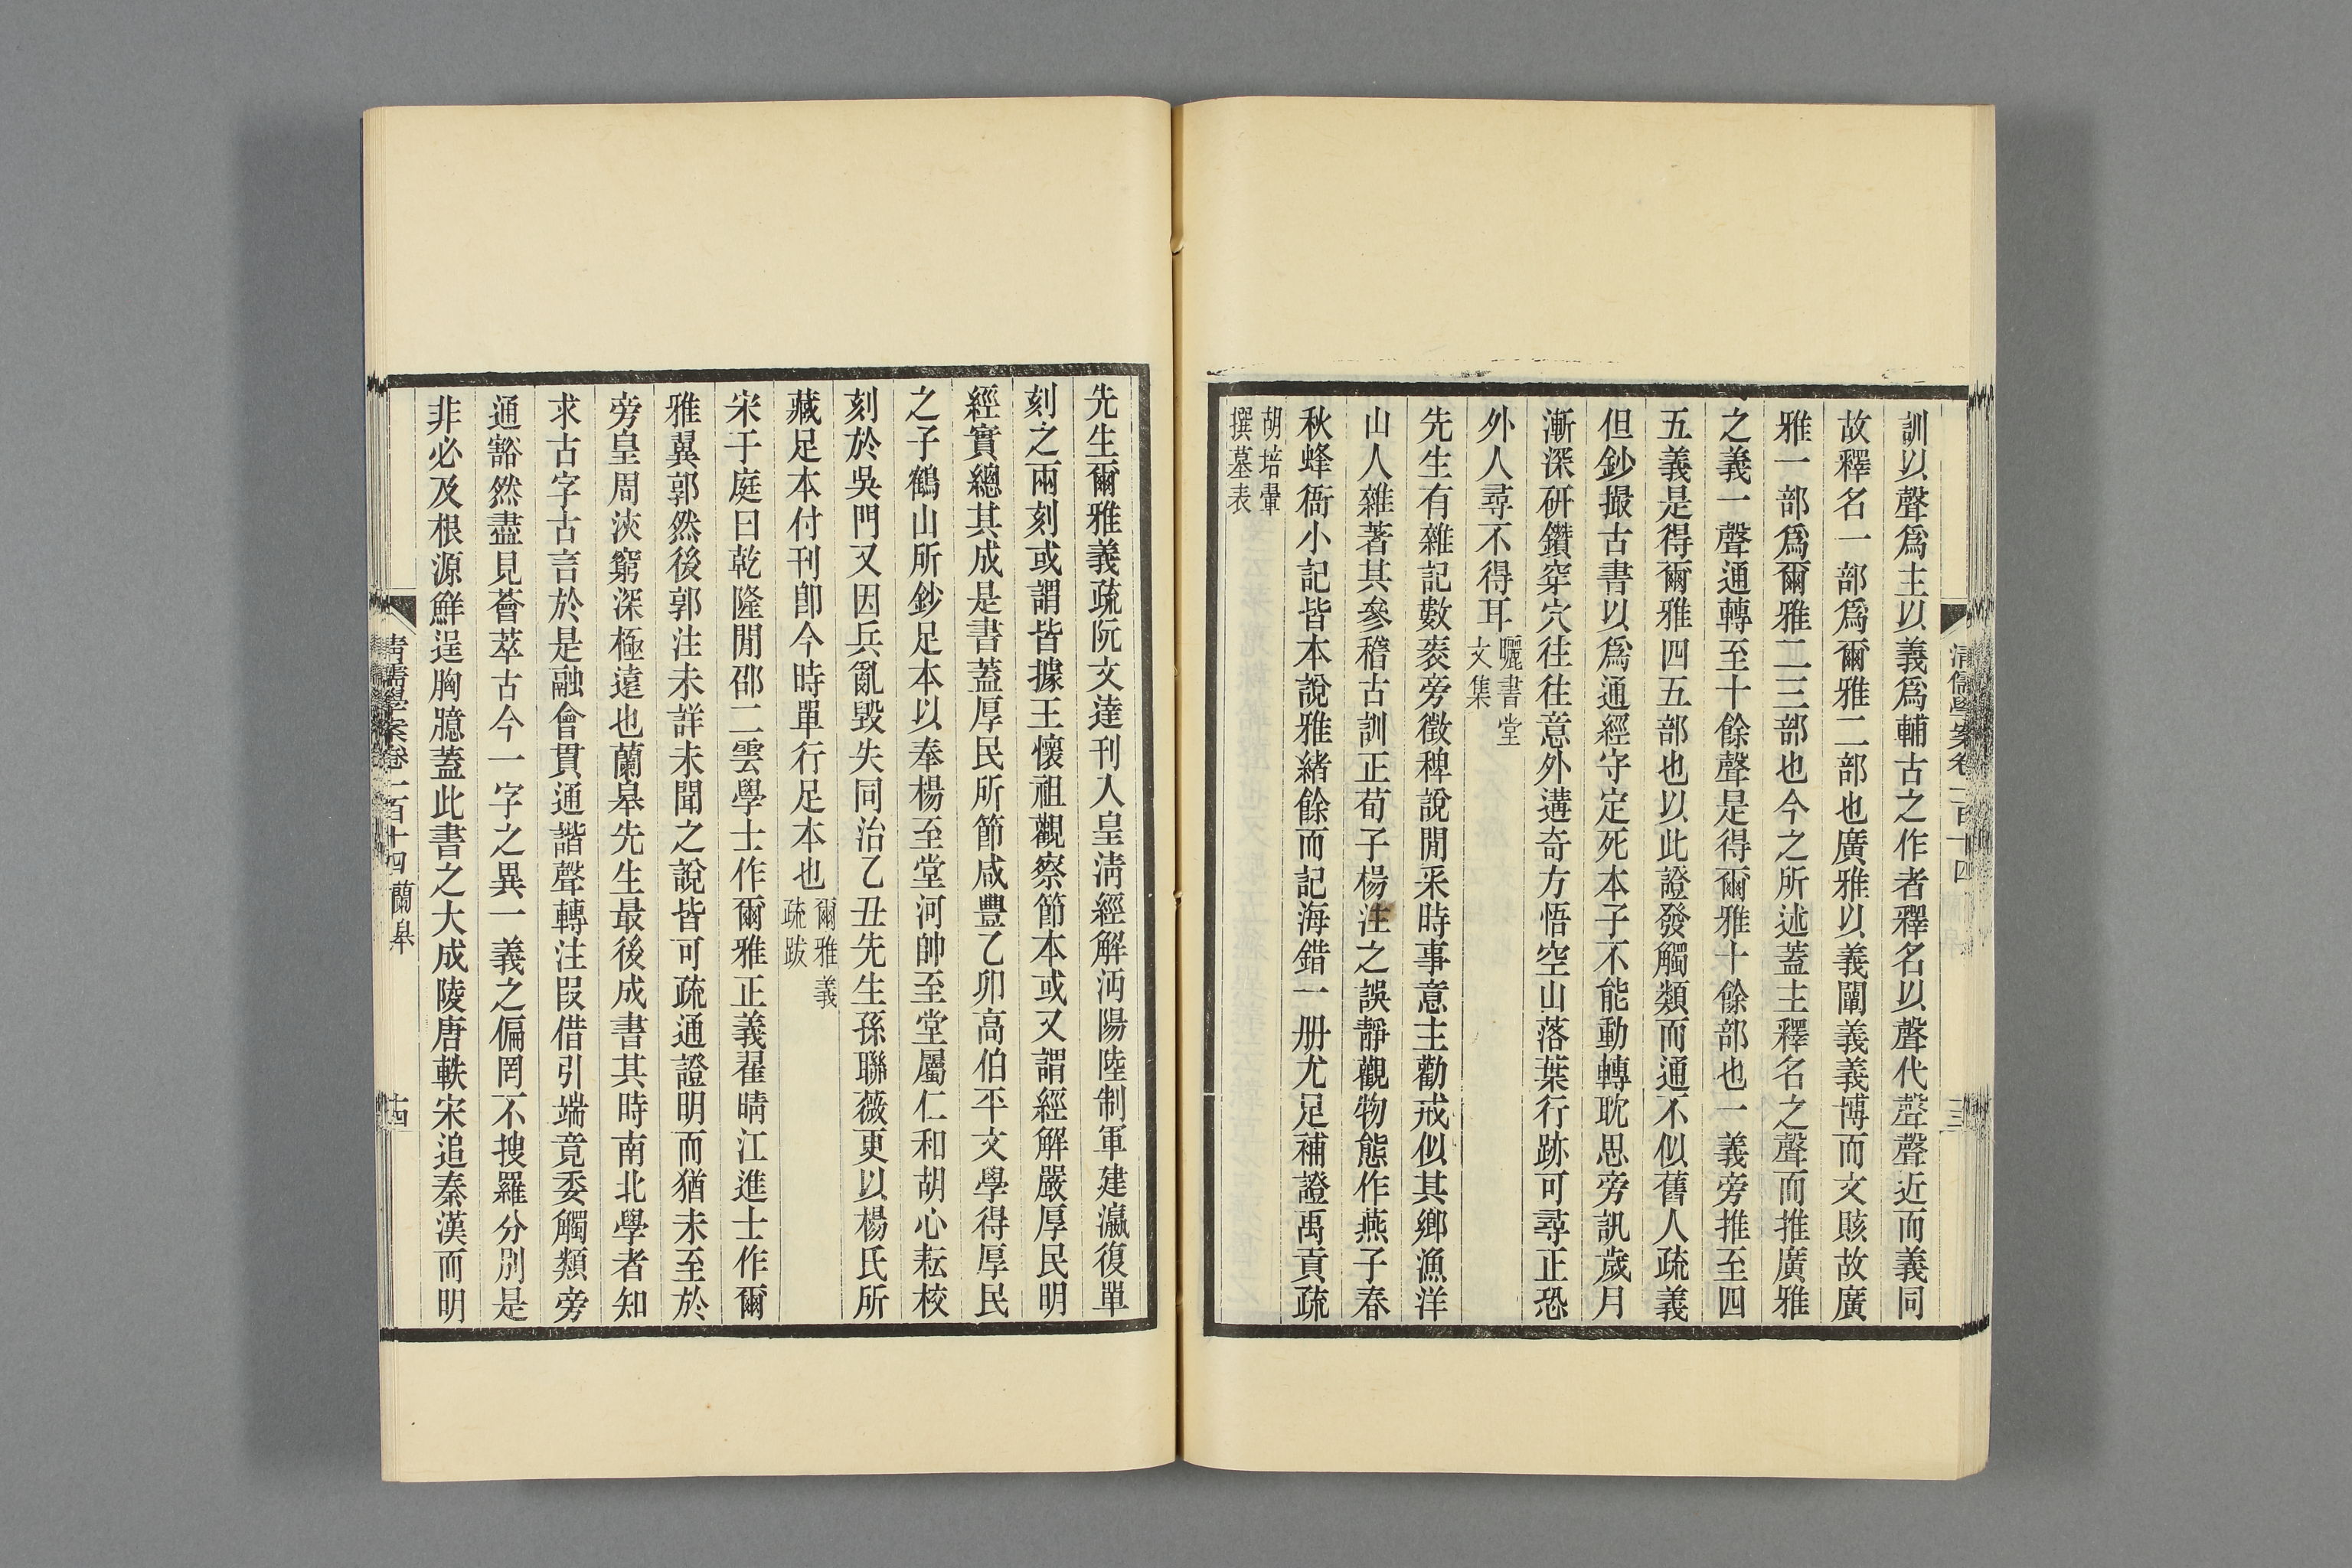 訓以聲爲主以義爲輔古之作者釋名以聲代聲聲近而義同
故釋名一部爲爾雅二部也廣雅以義闡義義博而文賅故廣
雅一部爲爾雅二三部也今之所述蓋主釋名之聲而推廣雅
之義一聲通轉至十餘聲是得爾雅十餘部也一義旁推至四
五義是得爾雅四五部也以此證發觸類而通不似舊人疏義
但鈔撮古書以爲通經守定死本子不能動轉耽思旁訊歲月
漸深硏鑽穿穴往往意外遘奇方悟空山落葉行跡可尋正恐
外人尋不得耳曬書堂文集
先生有雜記數袠旁徵稗說閒采時事意主勸戒似其鄉漁洋
山人雜著其參稽古訓正荀子楊注之誤靜觀物態作燕子春
秋蜂衙小記皆本說雅緒餘而記海錯一册尤足補證禹貢疏
胡培翬
撰墓表
清儒學案卷一百十四
十三
先生爾雅義疏阮文達刊入皇淸經解沔陽陸制軍建瀛復單
刻之兩刻或謂皆據王懷祖觀察節本或又謂經解嚴厚民明
經實總其成是書蓋厚民所節咸豐乙卯高伯平文學得厚民
之子鶴山所鈔足本以奉楊至堂河帥至堂屬仁和胡心耘校
刻於吳門又因兵亂毀失同治乙丑先生孫聯薇更以楊氏所
藏足本付刊卽今時單行足本也爾雅義疏跋
宋于庭曰乾隆閒邵二雲學士作爾雅正義翟晴江進士作爾
雅翼郭然後郭注未詳未聞之說皆可疏通證明而猶未至於
旁皇周浹窮深極遠也蘭皋先生最後成書其時南北學者知
求古字古言於是融會貫通諧聲轉注叚借引端竟委觸類旁
通豁然盡見薈萃古今一字之異一義之偏罔不搜羅分別是
非必及根源鮮逞胸臆蓋此書之大成陵唐軼宋追秦漢而明
清儒學案卷一百十四 蘭皋
十四